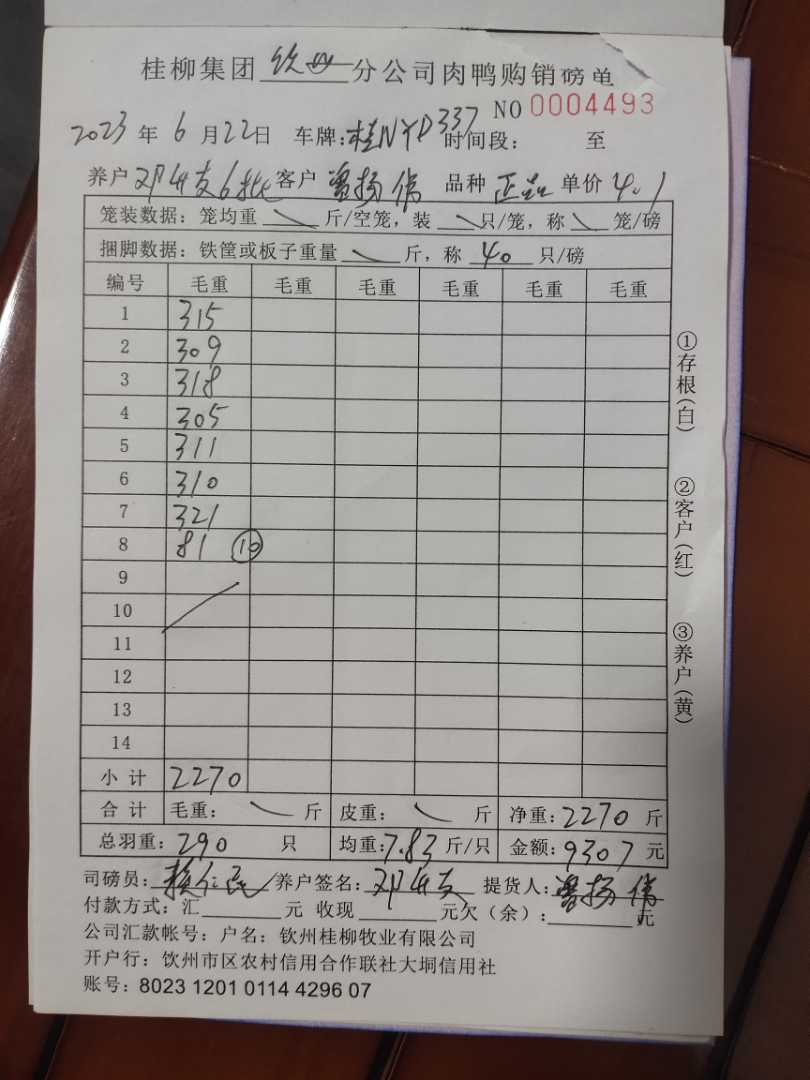 桂柳集团 钦州 分公司肉鸭购销磅单
NO 0004493
2023 年 6 月 22 日 车牌：桂NYD337 时间段： 至
养户 邓 支6批 客户 曾扬 品种 正品 单价 4.1
笼装数据：笼均重 ╲ 斤/空笼，装 ╲ 只/笼，称 ╲ 笼/磅
捆脚数据：铁筐或板子重量 ╲ 斤，称 40 只/磅
编号 毛重 毛重 毛重 毛重 毛重 毛重
1 315
2 309
3 318
4 305
5 311
6 310
7 321
8 81 ⑩
9
10
11
12
13
14
小 计 2270
合 计 毛重： ╲ 斤 皮重： ╲ 斤 净重：2270 斤
总羽重：290 只 均重：7.83 斤/只 金额：9307 元
司磅员： 养户签名：邓 支 提货人：曾扬
付款方式：汇 元 收现 元欠（余）： 元
公司汇款帐号：户名：钦州桂柳牧业有限公司
开户行：钦州市区农村信用合作联社大垌信用社
账号：8023 1201 0114 4296 07
①存根（白）
②客户（红）
③养户（黄）